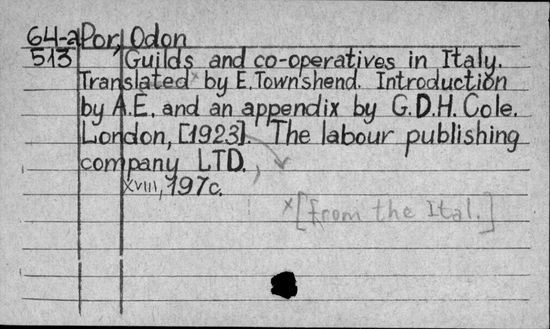 64-a Por, Odon
513 Guilds and co-operatives in Italy.
Translated x by E. Townshend. Introduction
by A.E. and an appendix by G.D.H. Cole.
London, [1923]. The labour publishing
company LTD.,
XVIII, 197c.
x[from the Ital.]